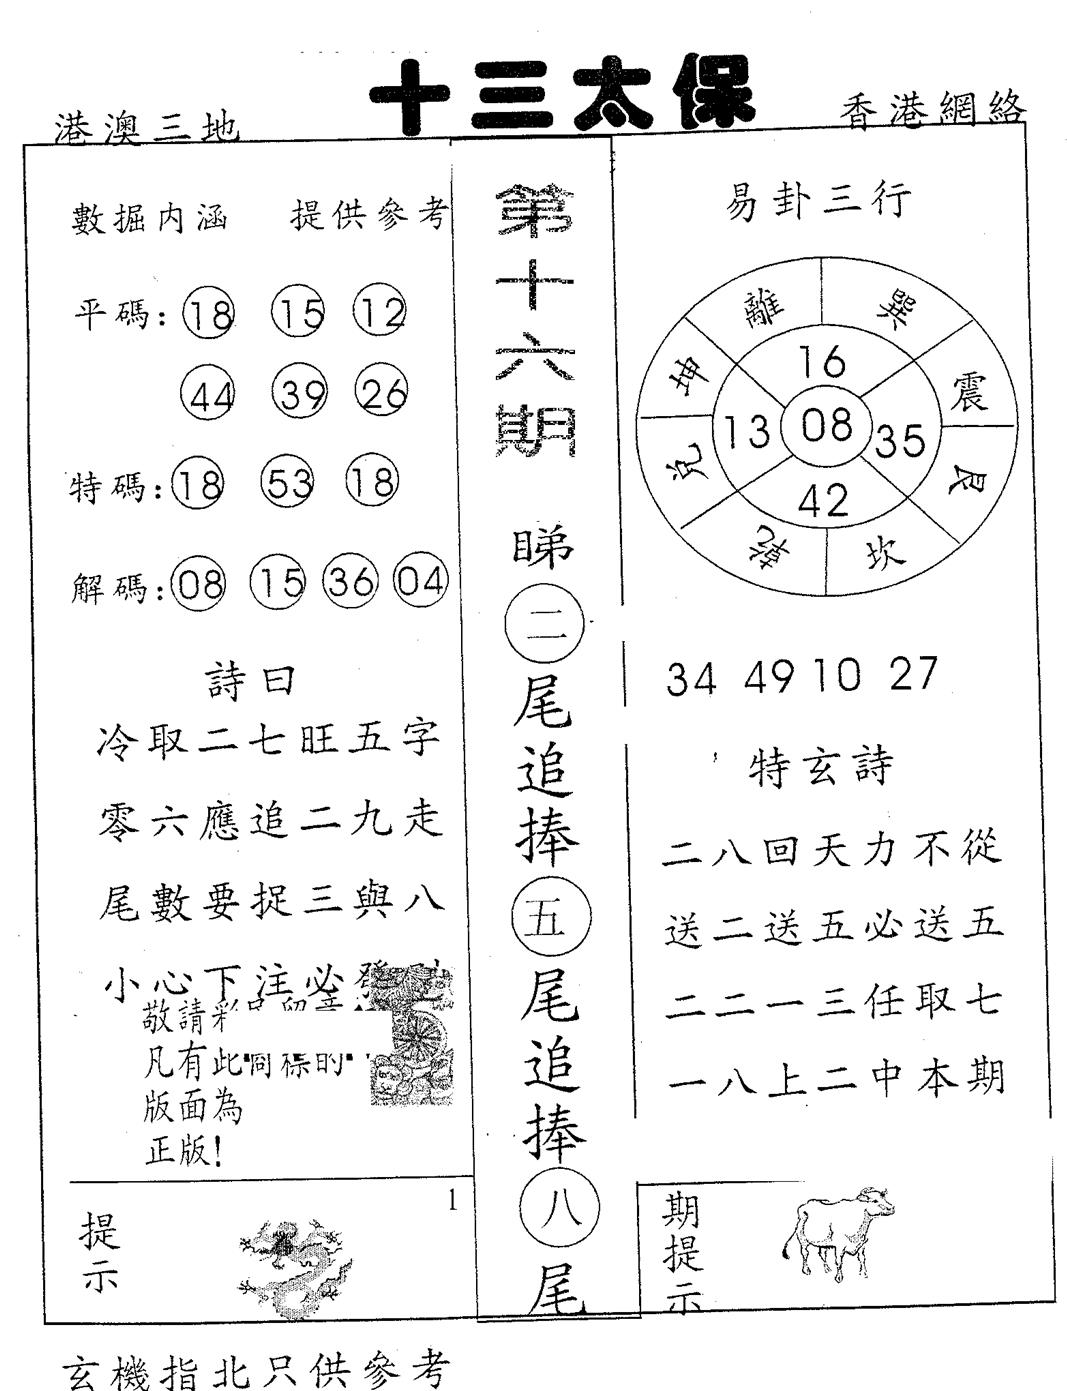 十三太保
港澳三地
香港網絡
數掘内涵 提供參考
平碼: 18 15 12
44 39 26
特碼: 18 53 18
解碼: 08 15 36 04
詩曰
冷取二七旺五字
零六應追二九走
尾數要捉三與八
小心下注必
敬請彩
凡有此
版面為
正版!
提示
1
第十六期
睇二尾追捧五尾追捧八尾
易卦三行
離 巽
坤 震
兑 艮
乾 坎
16
13 08 35
42
34 49 10 27
特玄詩
二八回天力不從
送二送五必送五
二二一三任取七
一八上二中本期
期提示
玄機指北只供參考